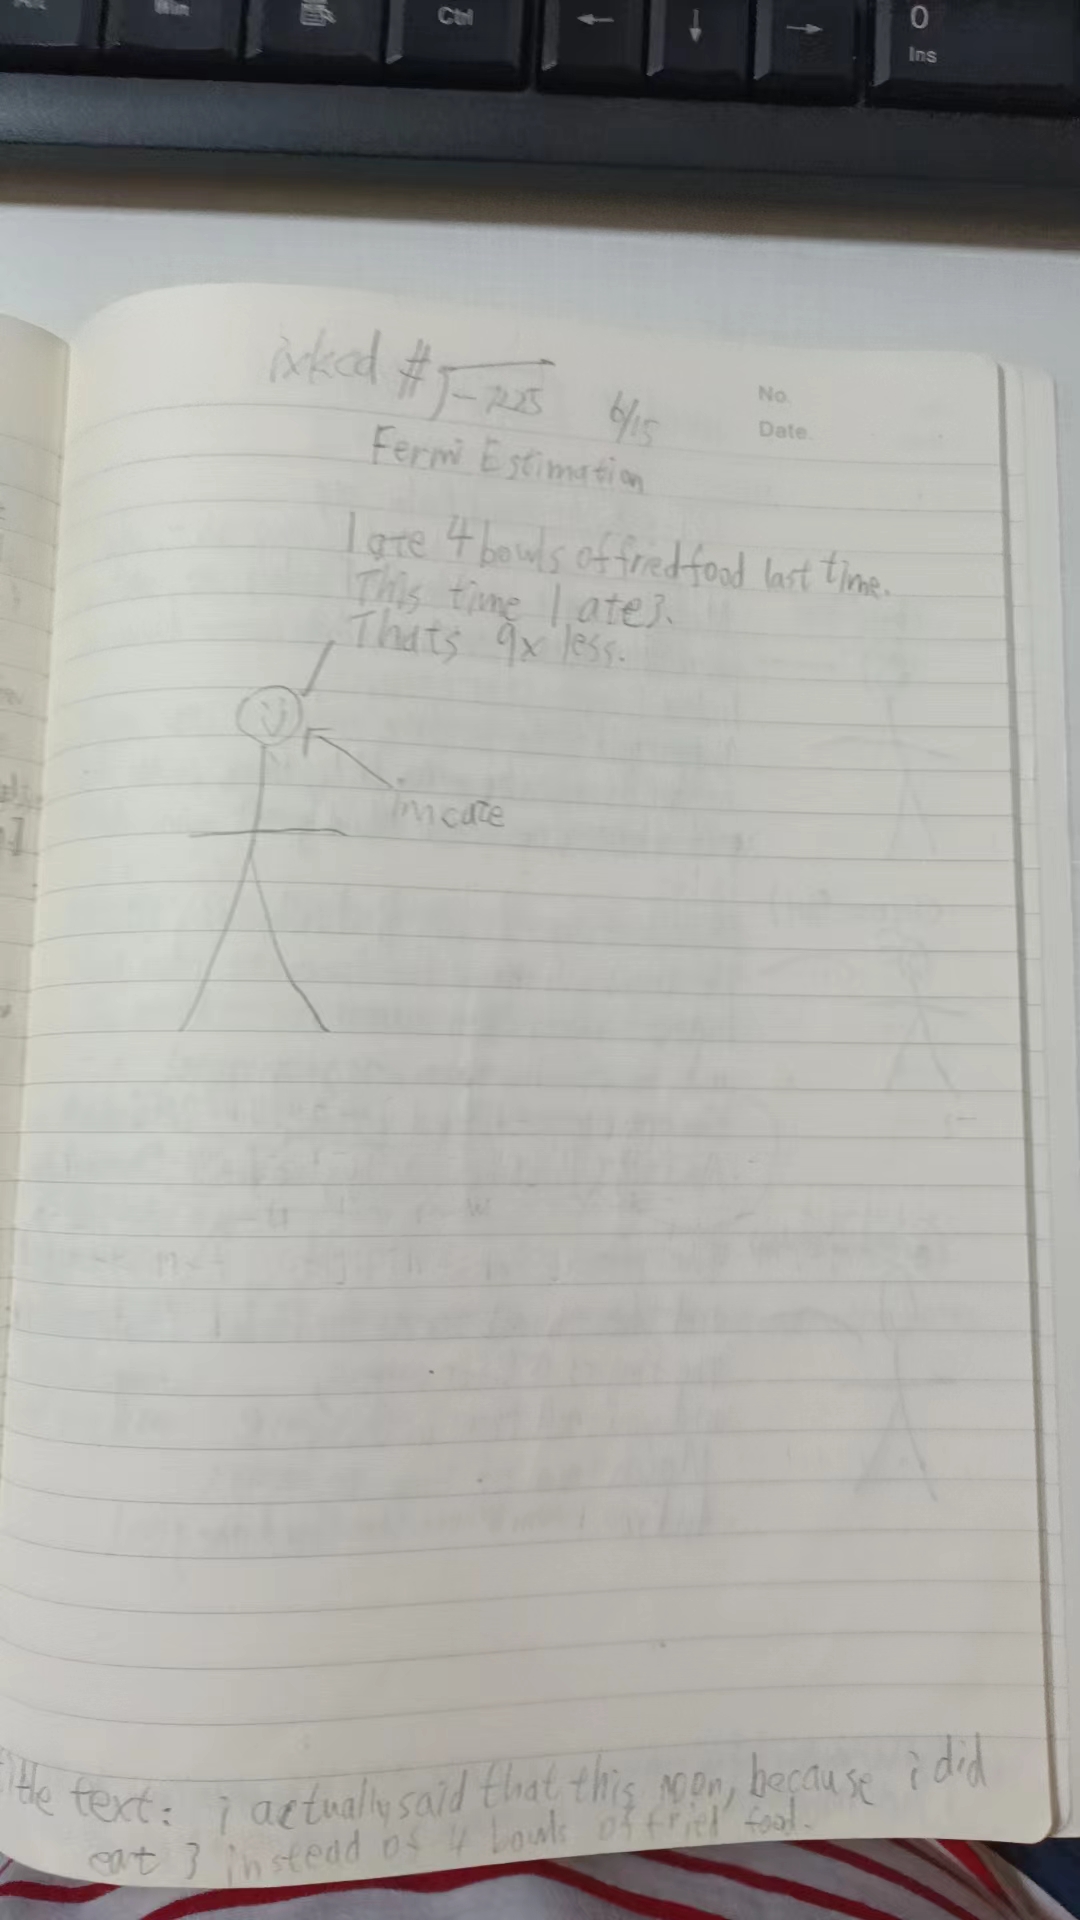 Win
Ctrl
←
↓
→
0
Ins
ixkcd #√-7225 6/15
No.
Date.
Fermi Estimation
I ate 4 bowls of fried food last time.
This time I ate 3.
Thats 9x less.
im cute
title text: i actually said that this noon, because i did
eat 3 instead of 4 bowls of fried food.